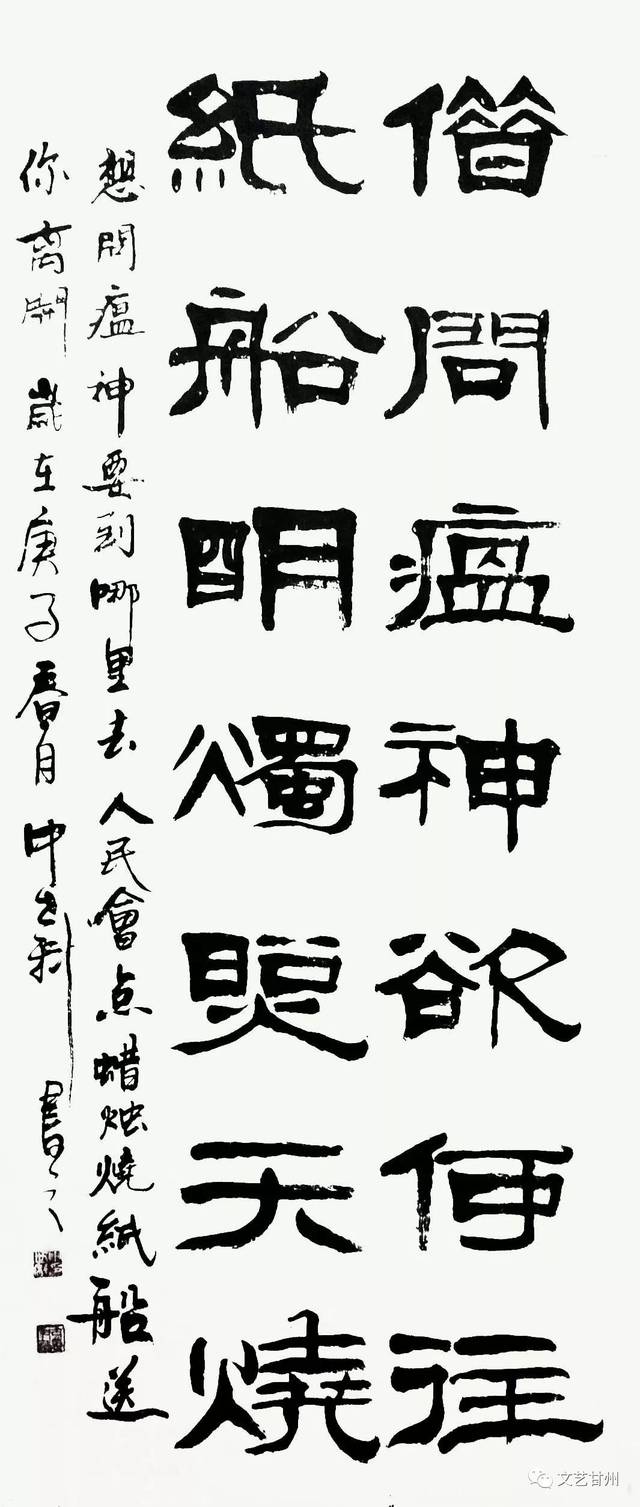 借問瘟神欲何往
紙船明燭照天燒
想問瘟神要到哪里去人民會点蜡烛燒紙船送
你离開歲在庚子春月中
文艺甘州